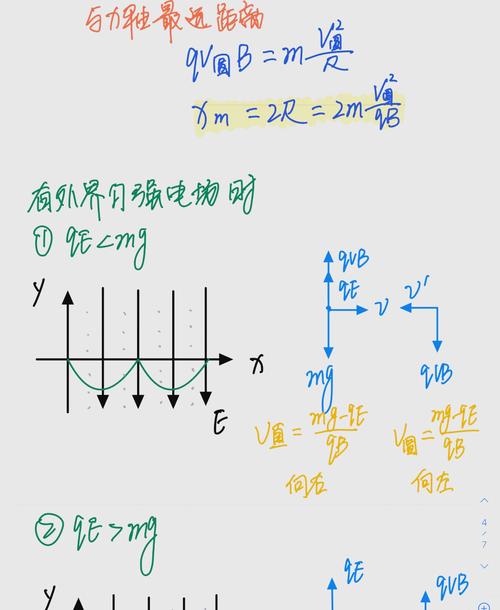 与力轴最远距离
qV圆B = m V圆²/R
xm = 2R = 2m V圆²/qB
有外界匀强电场时
① qE<mg
y
x
E
qvB
qE
v
mg
v'
qvB
V直 = mg-qE/qB
向右
V圆 = mg-qE/qB
向左
② qE>mg
y
qE
qvB
4/7